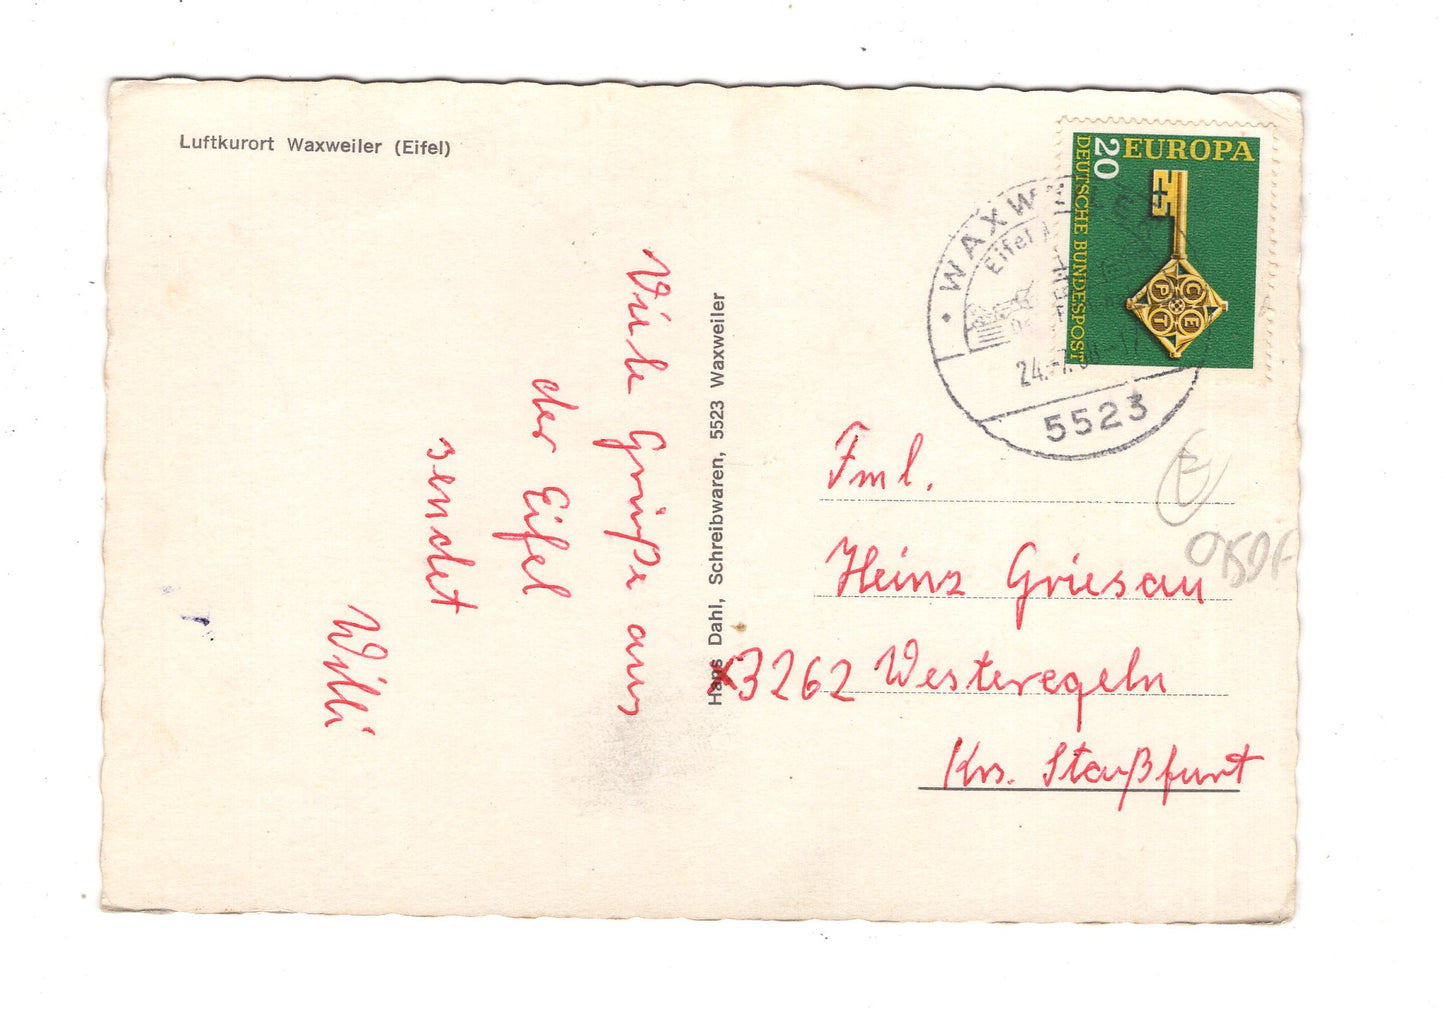 Luftkurort Waxweiler (Eifel)
Viele Grüße aus
der Eifel
sendet
Willi
Hans Dahl, Schreibwaren, 5523 Waxweiler
EUROPA
20
DEUTSCHE BUNDESPOST
C E P T
WAXWEILE
Eifel
24.
5523
Fml.
Heinz Griesau
3262 Westeregeln
Krs. Staßfurt